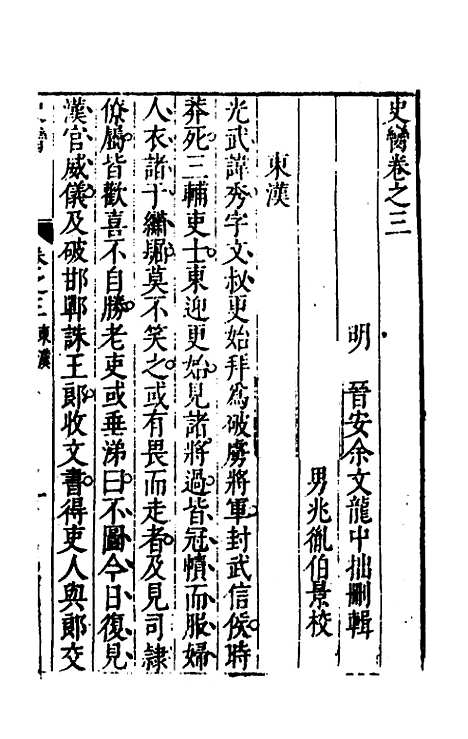 史臠卷之三
明 晉安余文龍中拙刪輯
男兆胤伯景校
東漢
光武諱秀字文叔更始拜為破虜將軍封武信侯時
莽死三輔吏士東迎更始見諸將過皆冠幘而服婦
人衣諸于繡𧝎莫不笑之或有畏而走者及見司隷
僚屬皆歡喜不自勝老吏或垂涕曰不圖今日復見
漢官威儀及破邯鄲誅王郎收文書得吏人與郎交
卷之三 東漢